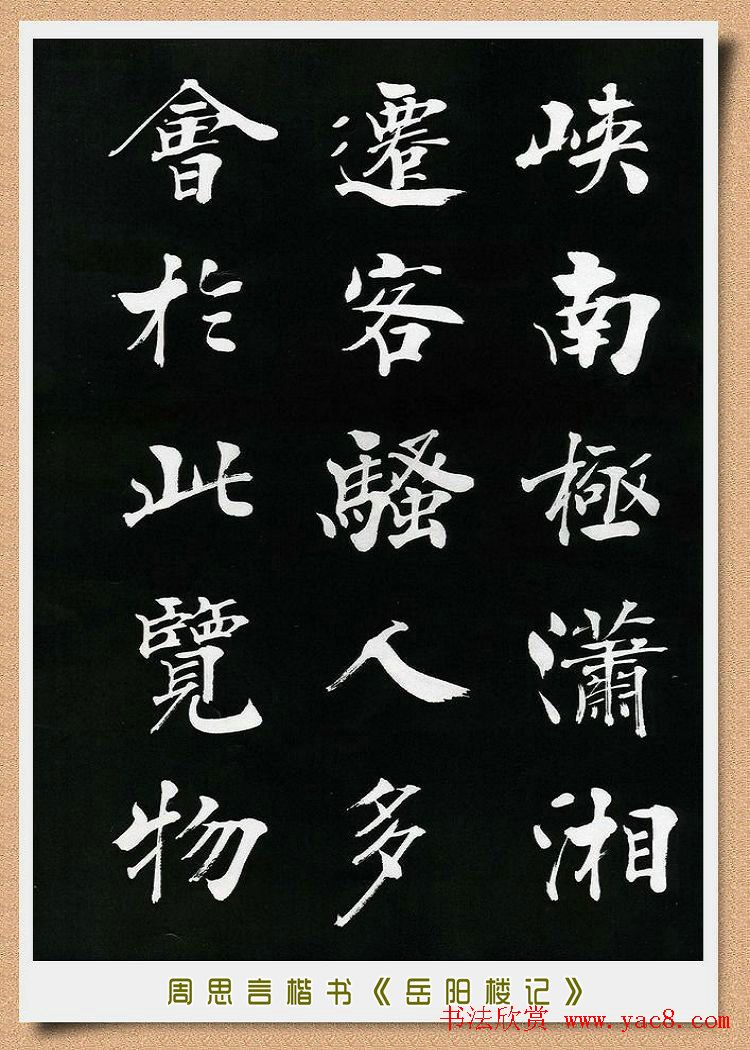 峽南極瀟湘
遷客騷人多
會於此覽物
周思言楷书《岳阳楼记》
书法欣赏 www.yac8.com